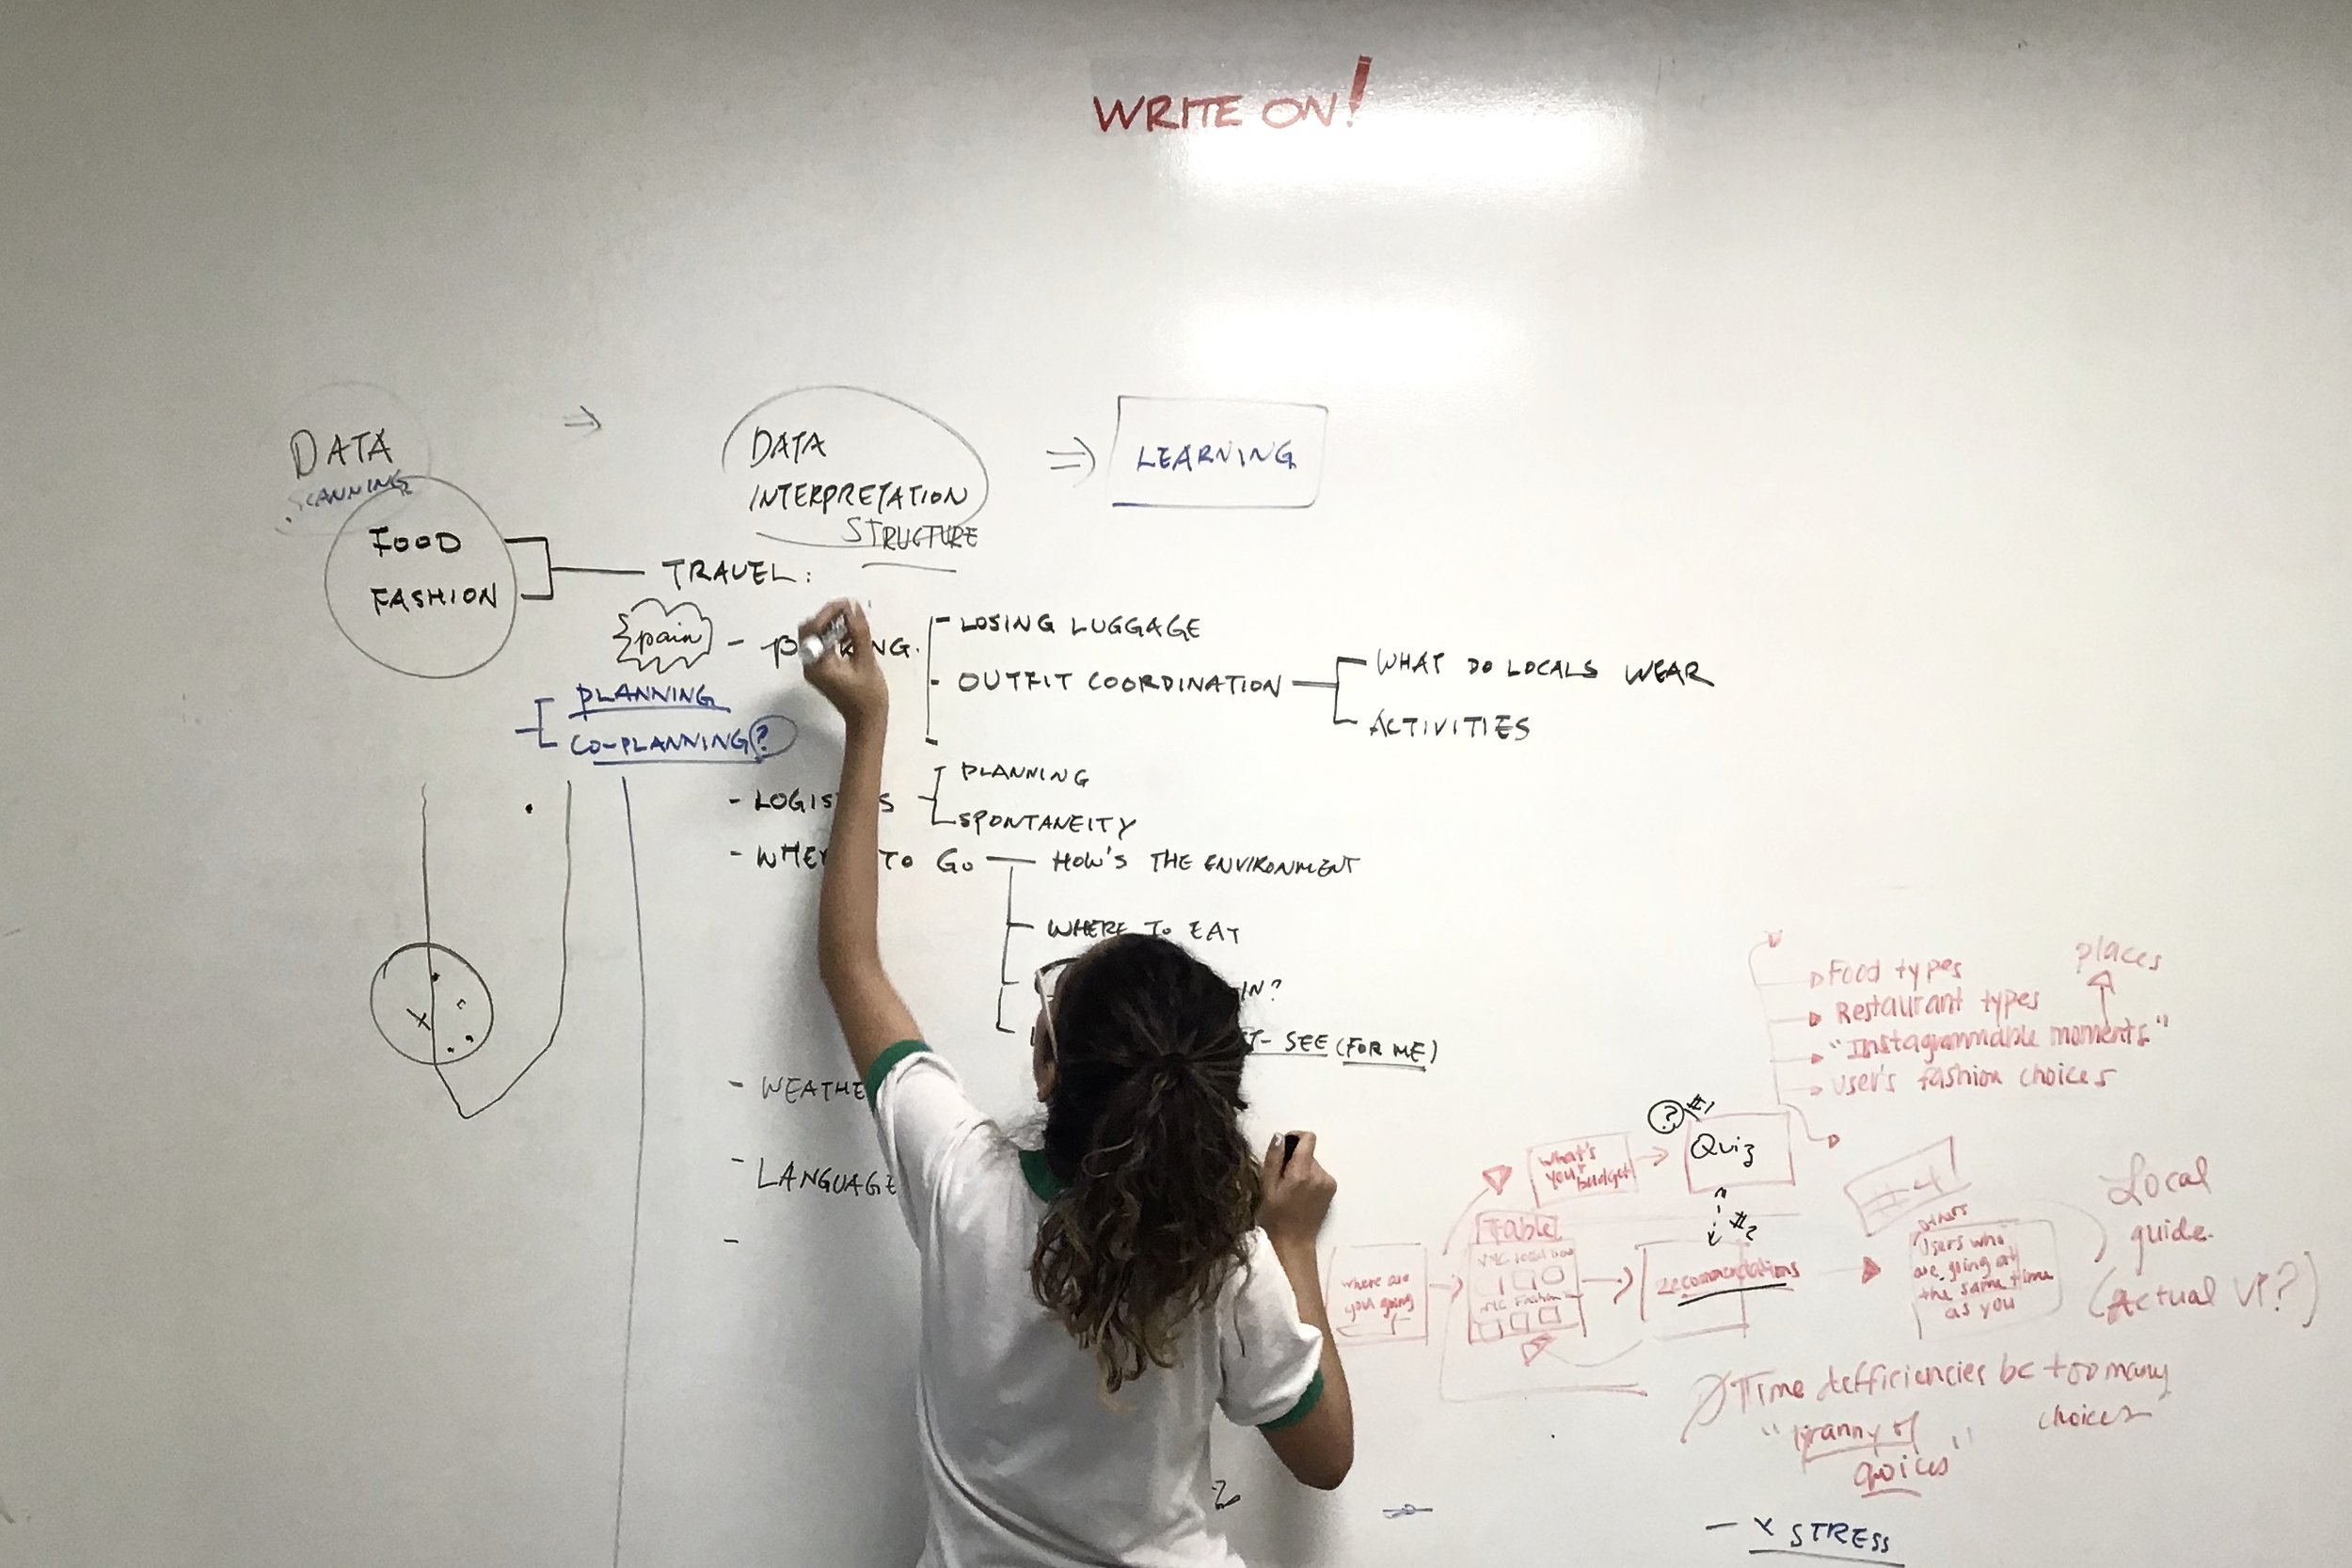 WRITE ON!
DATA
SCANNING
⇒
DATA
INTERPRETATION
STRUCTURE
⇒
LEARNING
FOOD
FASHION
TRAVEL:
pain
LOSING LUGGAGE
OUTFIT COORDINATION
WHAT DO LOCALS WEAR
ACTIVITIES
PLANNING
CO-PLANNING?
PLANNING
SPONTANEITY
TO GO
HOW'S THE ENVIRONMENT
WHERE TO EAT
IN?
SEE (FOR ME)
LANGUAGE
Food types
Restaurant types
"Instagrammable moments"
User's fashion choices
places
What's your budget
? #1
Quiz
#2
Table
where are
you going
recomendations
#4
others
Users who
are going at
the same time
as you
Local
guide.
(Actual VP?)
Time defficiencies bc too many
choices
"Tyranny of
choices"
- x STRESS